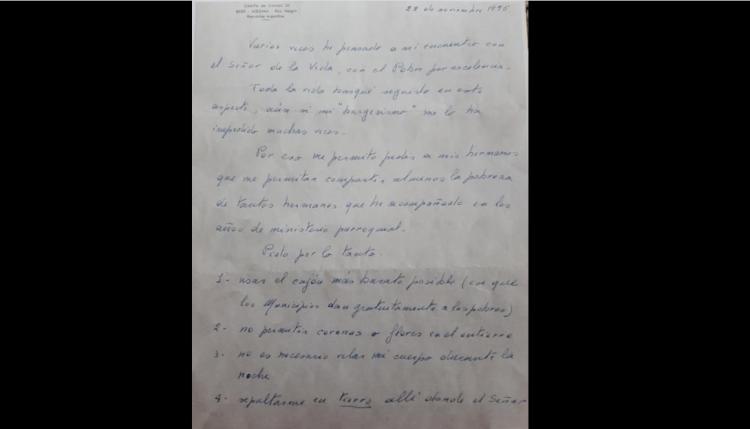 Casilla de Correo 20
8500 - VIEDMA - Río Negro
República Argentina
28 de noviembre 1996
Varias veces he pensado a mi encuentro con
el Señor de la Vida, con el Pobre por excelencia.
Toda la vida busqué seguirlo en este
aspecto, aún si mi "burgesismo" me lo ha
impedido muchas veces.
Por eso me permito pedir a mis hermanos
que me permitan compartir, al menos la pobreza
de tantos hermanos que he acompañado en los
años de ministerio parroquial.
Pido, por lo tanto
1- usar el cajón más barato posible (con que
los Municipios dan gratuitamente a los pobres)
2- no permitir coronas o flores en el entierro
3- no es necesario velar mi cuerpo durante la
noche
4- sepultarme en tierra allí donde el Señor